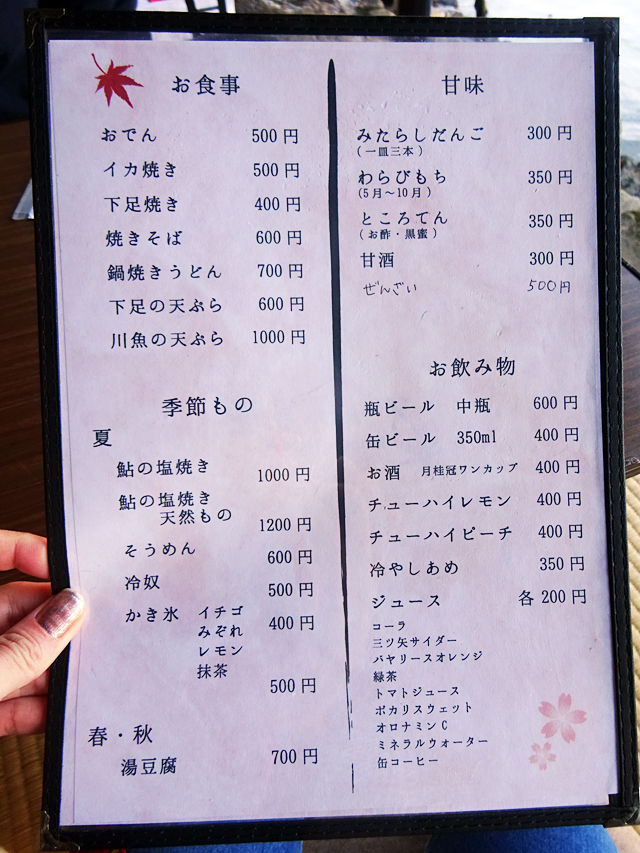 お食事
おでん 500円
イカ焼き 500円
下足焼き 400円
焼きそば 600円
鍋焼きうどん 700円
下足の天ぷら 600円
川魚の天ぷら 1000円
季節もの
夏
鮎の塩焼き 1000円
鮎の塩焼き
天然もの 1200円
そうめん 600円
冷奴 500円
かき氷 イチゴ 400円
みぞれ
レモン
抹茶 500円
春・秋
湯豆腐 700円
甘味
みたらしだんご 300円
(一皿三本)
わらびもち 350円
(5月~10月)
ところてん 350円
(お酢・黒蜜)
甘酒 300円
ぜんざい 500円
お飲み物
瓶ビール 中瓶 600円
缶ビール 350ml 400円
お酒 月桂冠ワンカップ 400円
チューハイレモン 400円
チューハイピーチ 400円
冷やしあめ 350円
ジュース 各200円
コーラ
三ツ矢サイダー
バヤリースオレンジ
緑茶
トマトジュース
ポカリスウェット
オロナミンC
ミネラルウォーター
缶コーヒー